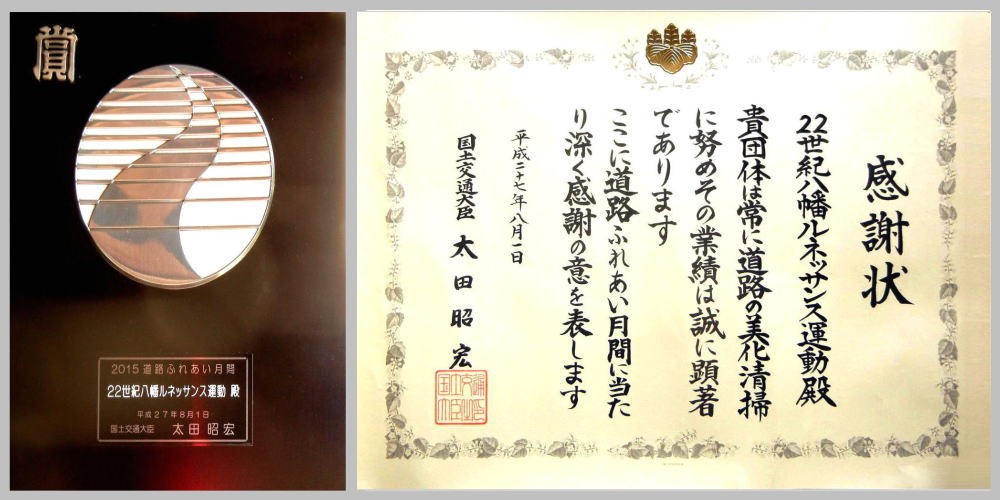 賞
2015道路ふれあい月間
22世紀八幡ルネッサンス運動 殿
平成27年8月1日
国土交通大臣 太田昭宏
感謝状
22世紀八幡ルネッサンス運動殿
貴団体は常に道路の美化清掃
に努めその業績は誠に顕著
であります
ここに道路ふれあい月間に当た
り深く感謝の意を表します
平成二十七年八月一日
国土交通大臣 太田昭宏